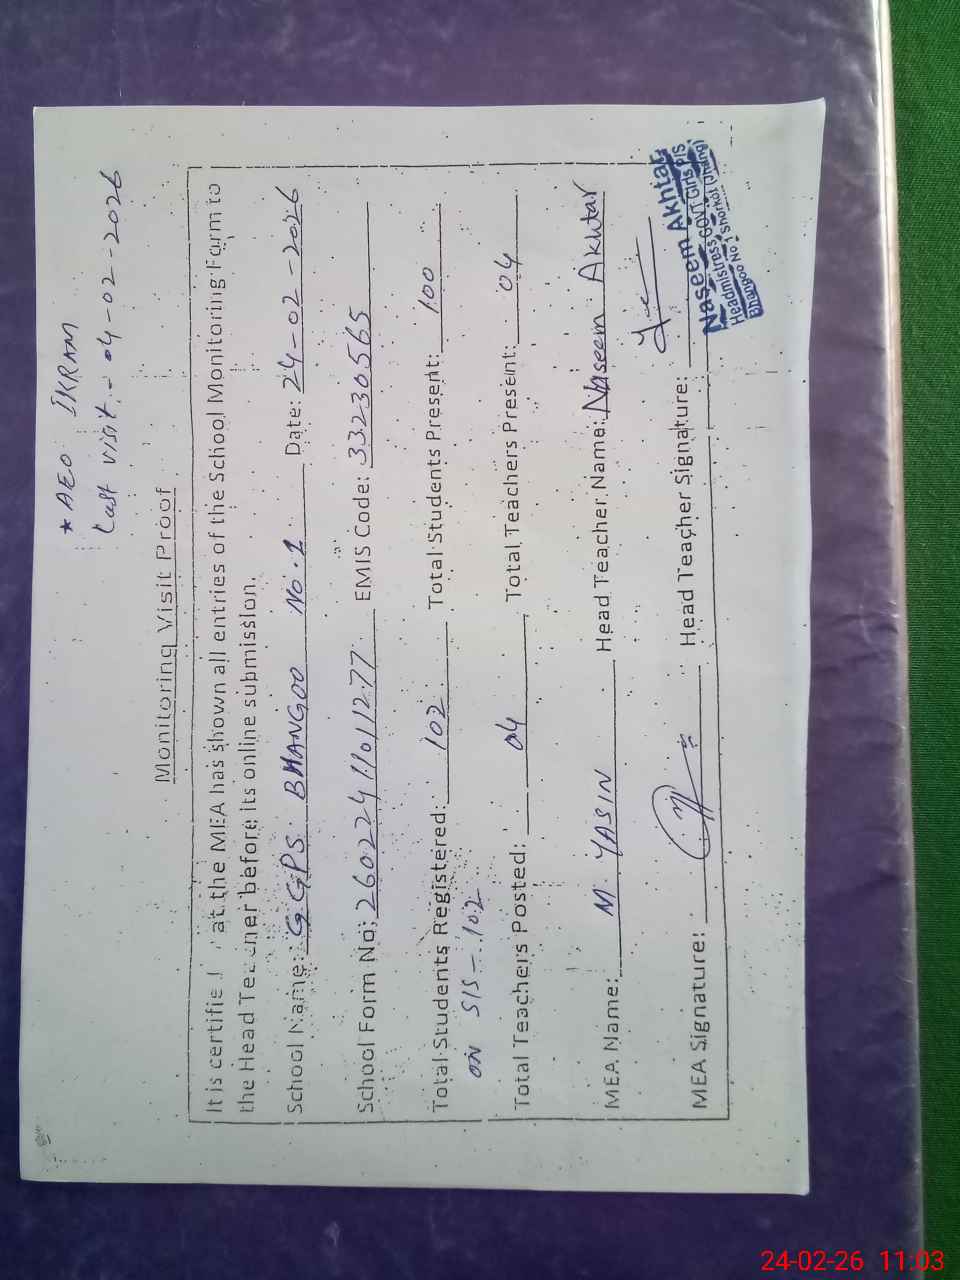 * AEO IKRAM
Last visit :- 04-02-2026
Monitoring Visit Proof
It is certified at the MEA has shown all entries of the School Monitoring Form to
the Head Teacher before its online submission.
School Name: GGPS BHANGOO No.1 Date: 24-02-2026
School Form No: 26022411011277 EMIS Code: 33230565
Total Students Registered: 102 Total Students Present: 100
ON SIS - 102
Total Teachers Posted: 04 Total Teachers Present: 04
MEA Name: M. YASIN Head Teacher Name: Naseem Akhtar
MEA Signature: Head Teacher Signature:
Naseem Akhtar
Headmistress GOVT Girls P/S
Bhangoo No 1 Shorkot (Jhang)
24-02-26 11:03